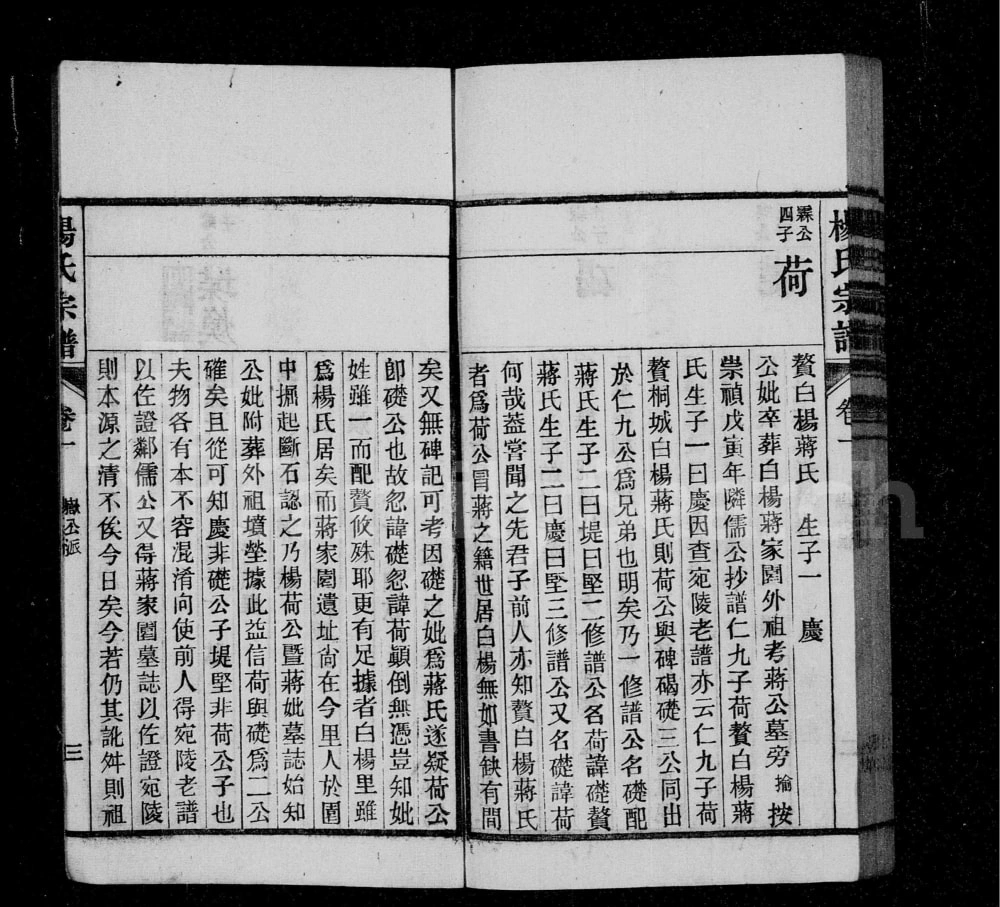 楊氏宗譜
卷一
霖公
四子
荷
贅白楊蔣氏 生子一 慶
公妣卒葬白楊蔣家園外祖考蔣公墓旁 按
崇禎戊寅年隣儒公抄譜仁九子荷贅白楊蔣
氏生子一曰慶因查宛陵老譜亦云仁九子荷
贅桐城白楊蔣氏則荷公與碑碣礎三公同出
於仁九公爲兄弟也明矣乃一修譜公名礎配
蔣氏生子二曰堤曰堅二修譜公名荷諱礎贅
蔣氏生子二曰慶曰堅三修譜公又名礎諱荷
何哉蓋嘗聞之先君子前人亦知贅白楊蔣氏
者爲荷公冒蔣之籍世居白楊無如書缺有間
矣又無碑記可考因礎之妣爲蔣氏遂疑荷公
卽礎公也故忽諱礎忽諱荷顚倒無憑豈知妣
姓雖一而配贅攸殊耶更有足據者白楊里雖
爲楊氏居矣而蔣家園遺址尙在今里人於園
中掘起斷石認之乃楊荷公暨蔣妣墓誌始知
公妣附葬外祖墳塋據此益信荷與礎爲二公
確矣且從可知慶非礎公子堤堅非荷公子也
夫物各有本不容混淆向使前人得宛陵老譜
以佐證鄰儒公又得蔣家園墓誌以佐證宛陵
則本源之清不俟今日矣今若仍其訛舛則祖
楊氏宗譜
卷一
公派
三